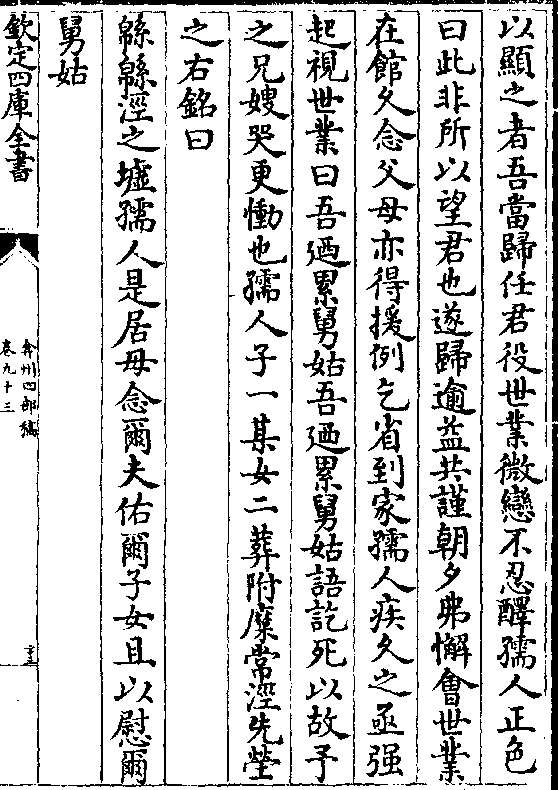 以顯之者吾當歸任君役世業微戀不忍醳孺人正色
曰此非所以望君也遂歸逾益共謹朝夕弗懈會世業
在館久念父母亦得援例乞省到家孺人疾久之亟强
起視世業曰吾廼累舅姑吾廼累舅姑語訖死以故予
之兄嫂哭更慟也孺人子一某女二葬附糜常涇先塋
之右銘曰
緜緜涇之墟孺人是居毋念爾夫佑爾子女且以慰爾
舅姑
欽定四庫全書
弇州四部稿
卷九十三